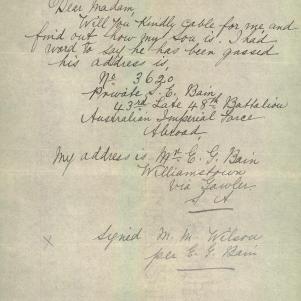 Dear Madam,
Will you kindly cable for me and
find out how my son is. I had
word to say he has been gassed
his address is,
No 3620
Private S. E. Bain
43rd Late 48th Battalion
Australian Imperial Force
Abroad,
My address is Mr E. G. Bain
Williamstown
via Gawler
S A
x Signed M. M. Wilson
per E. G. Bain